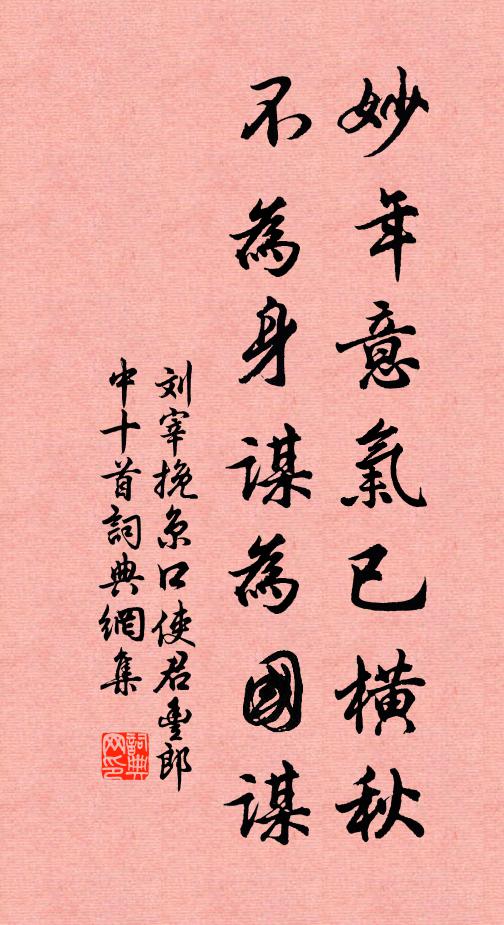 妙年意氣已橫秋
不為身謀為國謀
刘宰挽京口使君豐郎
中十首詞典網集
詞典网印